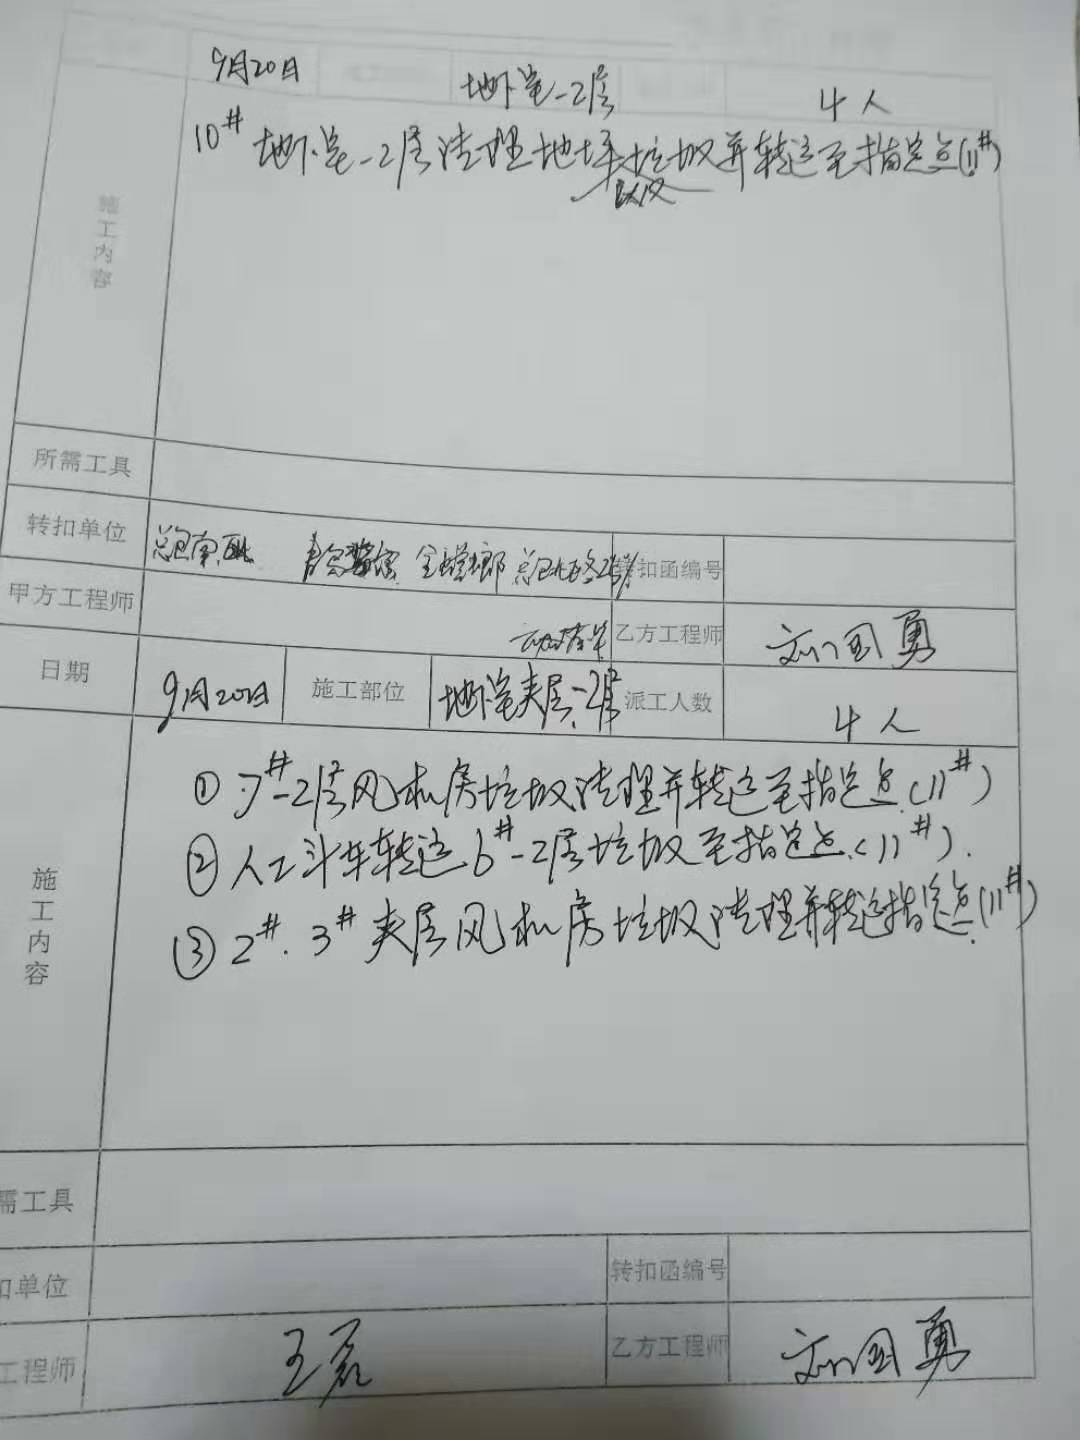 9月20日 地下室-2层 4人
10# 地下室-2层清理地坪垃圾并转运至指定点(11#)
施工内容
所需工具
转扣单位 总包南 转扣函编号
甲方工程师 乙方工程师 刘国勇
日期 9月20日 施工部位 地下室夹层、-2层 派工人数 4人
施工内容
① 7#-2层风机房垃圾清理并转运至指定点(11#)
② 人工斗车转运6#-2层垃圾至指定点(11#).
③ 2#.3# 夹层风机房垃圾清理并转运指定点(11#)
需工具
扣单位 转扣函编号
工程师 王磊 乙方工程师 刘国勇